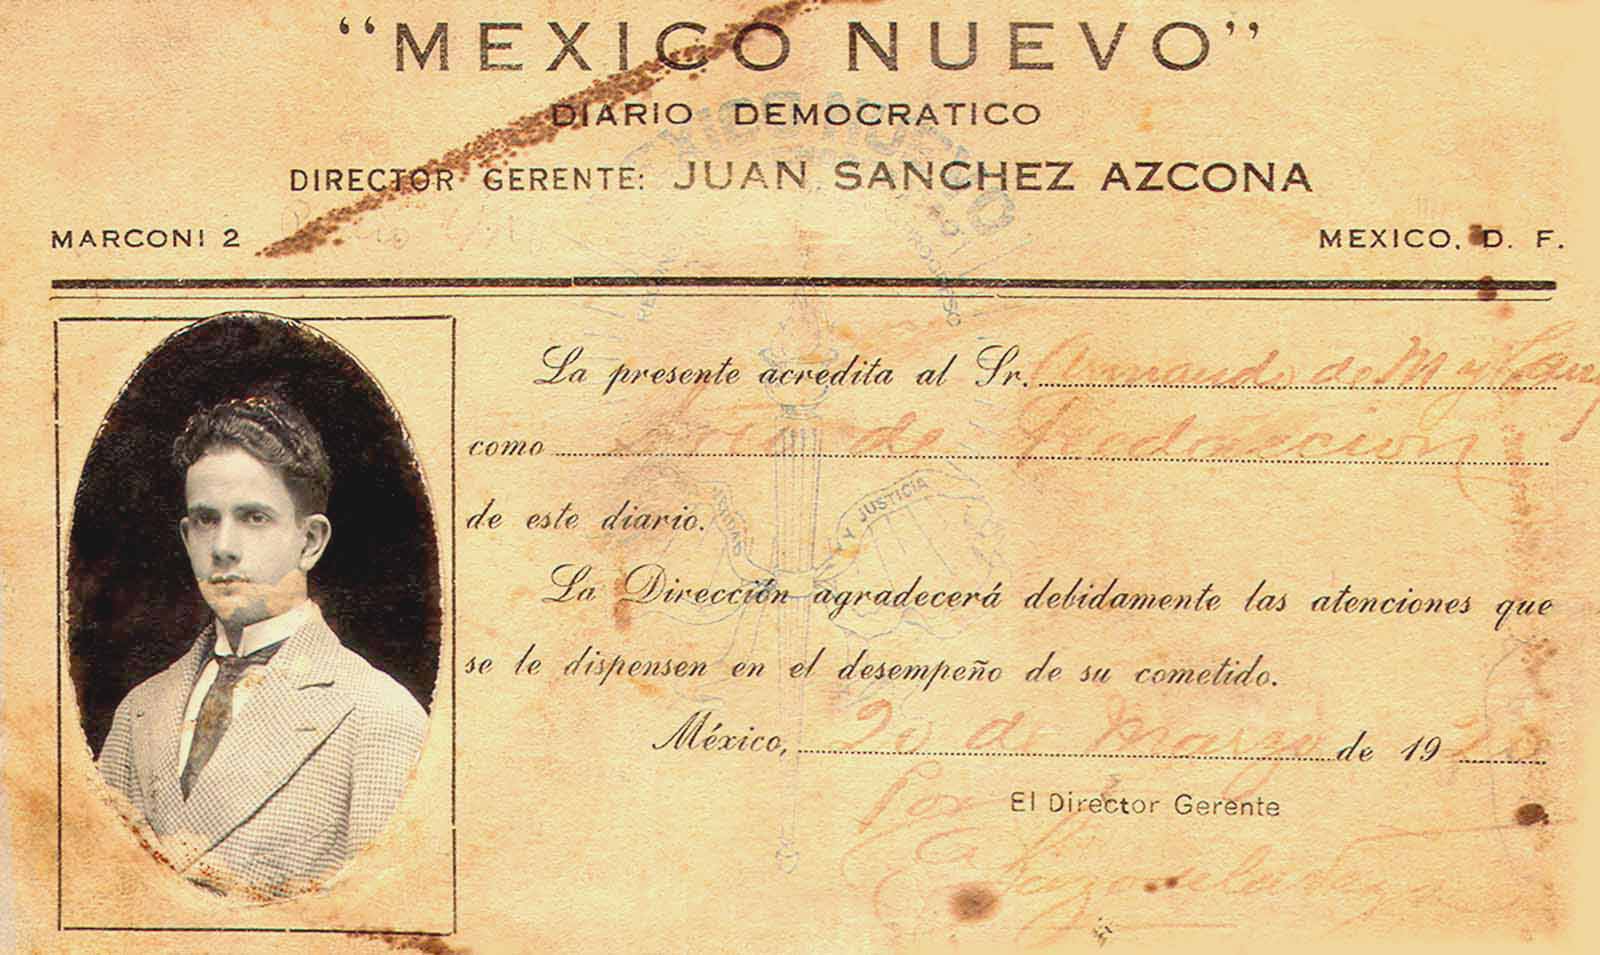 “MEXICO NUEVO”
DIARIO DEMOCRATICO
DIRECTOR GERENTE: JUAN SANCHEZ AZCONA
MARCONI 2 MEXICO, D. F.
La presente acredita al Sr. Armando de M y
como de Redaccion
de este diario.
Y JUSTICIA
La Dirección agradecerá debidamente las atenciones que
se le dispensen en el desempeño de su cometido.
México, 20 de Marzo de 19
Por
El Director Gerente